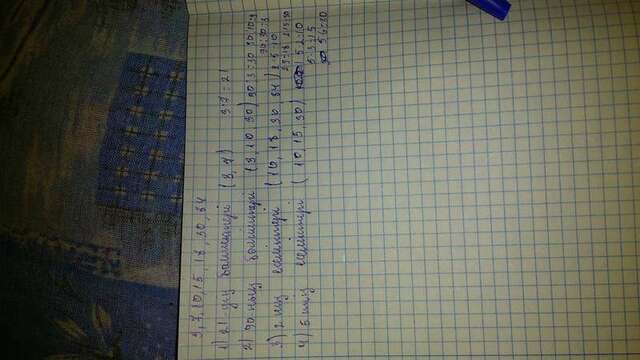 3, 7, 10, 15, 18, 30, 84
1) 21-дің бөлгіштері (3, 7) 3·7=21
2) 90-ның бөлгіштері (3, 10, 30) 90:3=30 90:10=9
90:30=3
3) 2 нің еселіктері (10, 18, 30, 84) 2·5=10
2·9=18 2·15=30
4) 5 тің еселіктері (10, 15, 30) 5·2=10
5·3=15
5·6=30